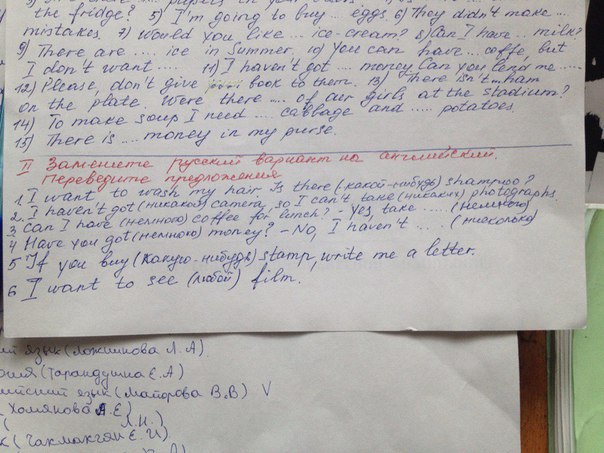 pupils in your
the fridge? 5) I'm going to buy ... eggs. 6) They didn't make ...
mistakes. 7) Would you like ... ice-cream? 8) Can I have ... milk?
9) There are .... ice in Summer. 10) You can have ... coffe, but
I don't want ...... 11) I haven't got .... money. Can you lend me .....
12) Please, don't give ..... book to them. 13) There isn't ... ham
on the plate. Were there .... of our girls at the stadium?
14) To make soup I need .... cabbage and ..... potatoes
15) There is .... money in my purse.
II Замените русский вариант на английский.
Переведите предложения
1. I want to wash my hair. Is there (какой-нибудь) shampoo?
2. I haven't got (никакой) camera, so I can't take (никаких) photographs
3 Can I have (немного) coffee for lunch? - Yes, take ..... (немного)
4 Have you got (немного) money? - No, I haven't ... (нисколько)
5 If you buy (какую-нибудь) stamp, write me a letter.
6 I want to see (любой) film.
язык (Ложникова Л.А)
(Тарандушка Е.А)
язык (Майорова В.В) V
Хомякова А.Е)
( Л.Н.)
(Чакмакгян Е.И)